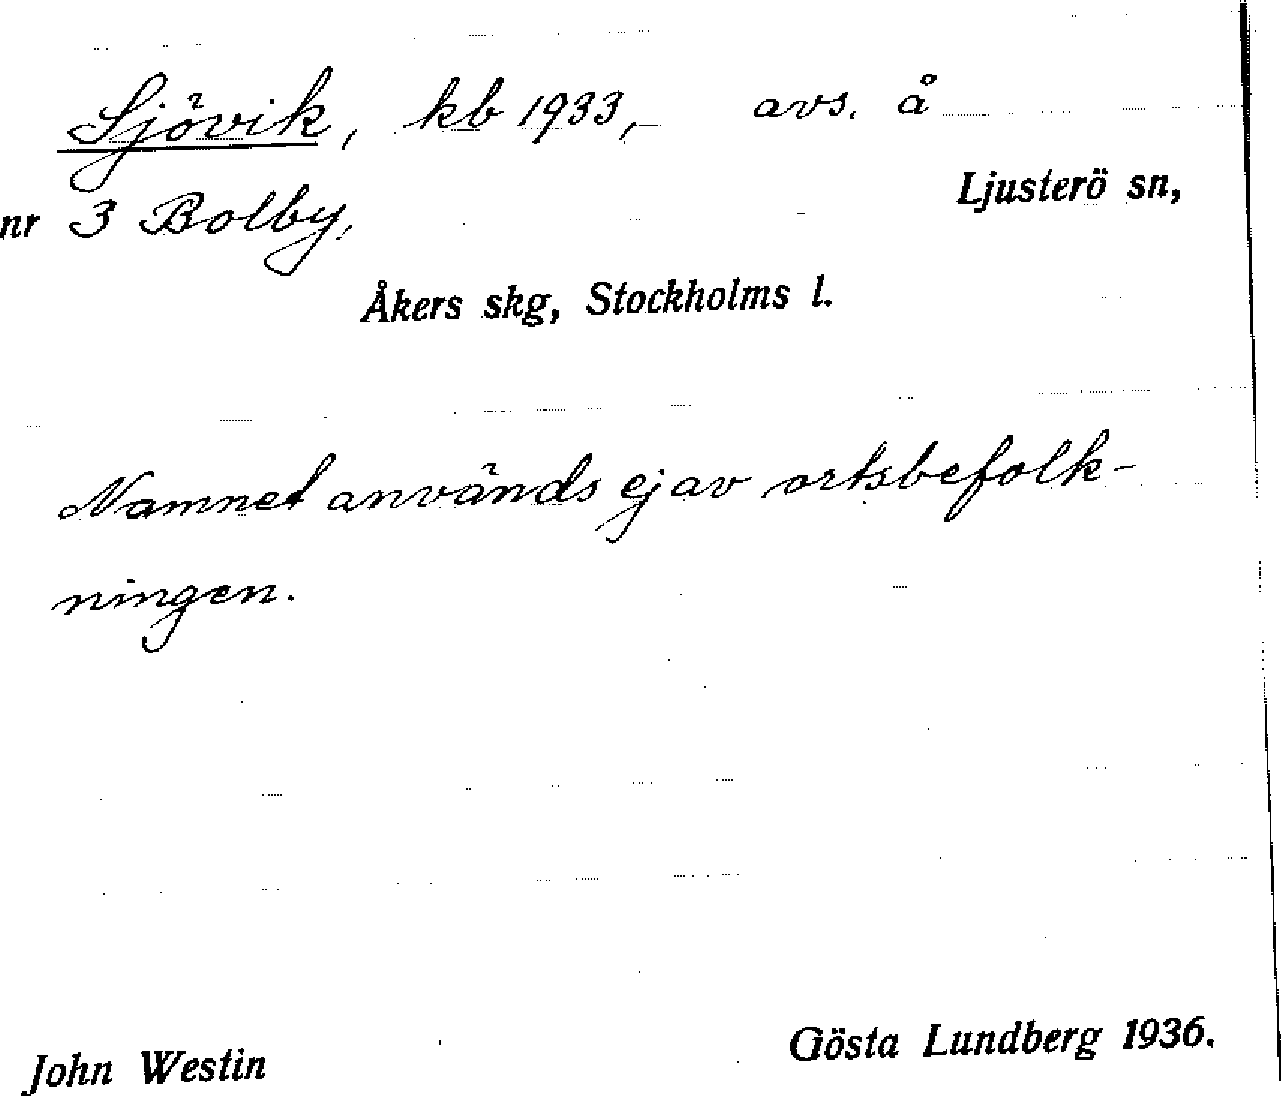 Sjövik, kb 1933, avs. å
Ljusterö sn,
nr 3 Bolby,
Åkers skg, Stockholms l.
Namnet används ej av ortsbefolk-
ningen.
Gösta Lundberg 1936.
John Westin